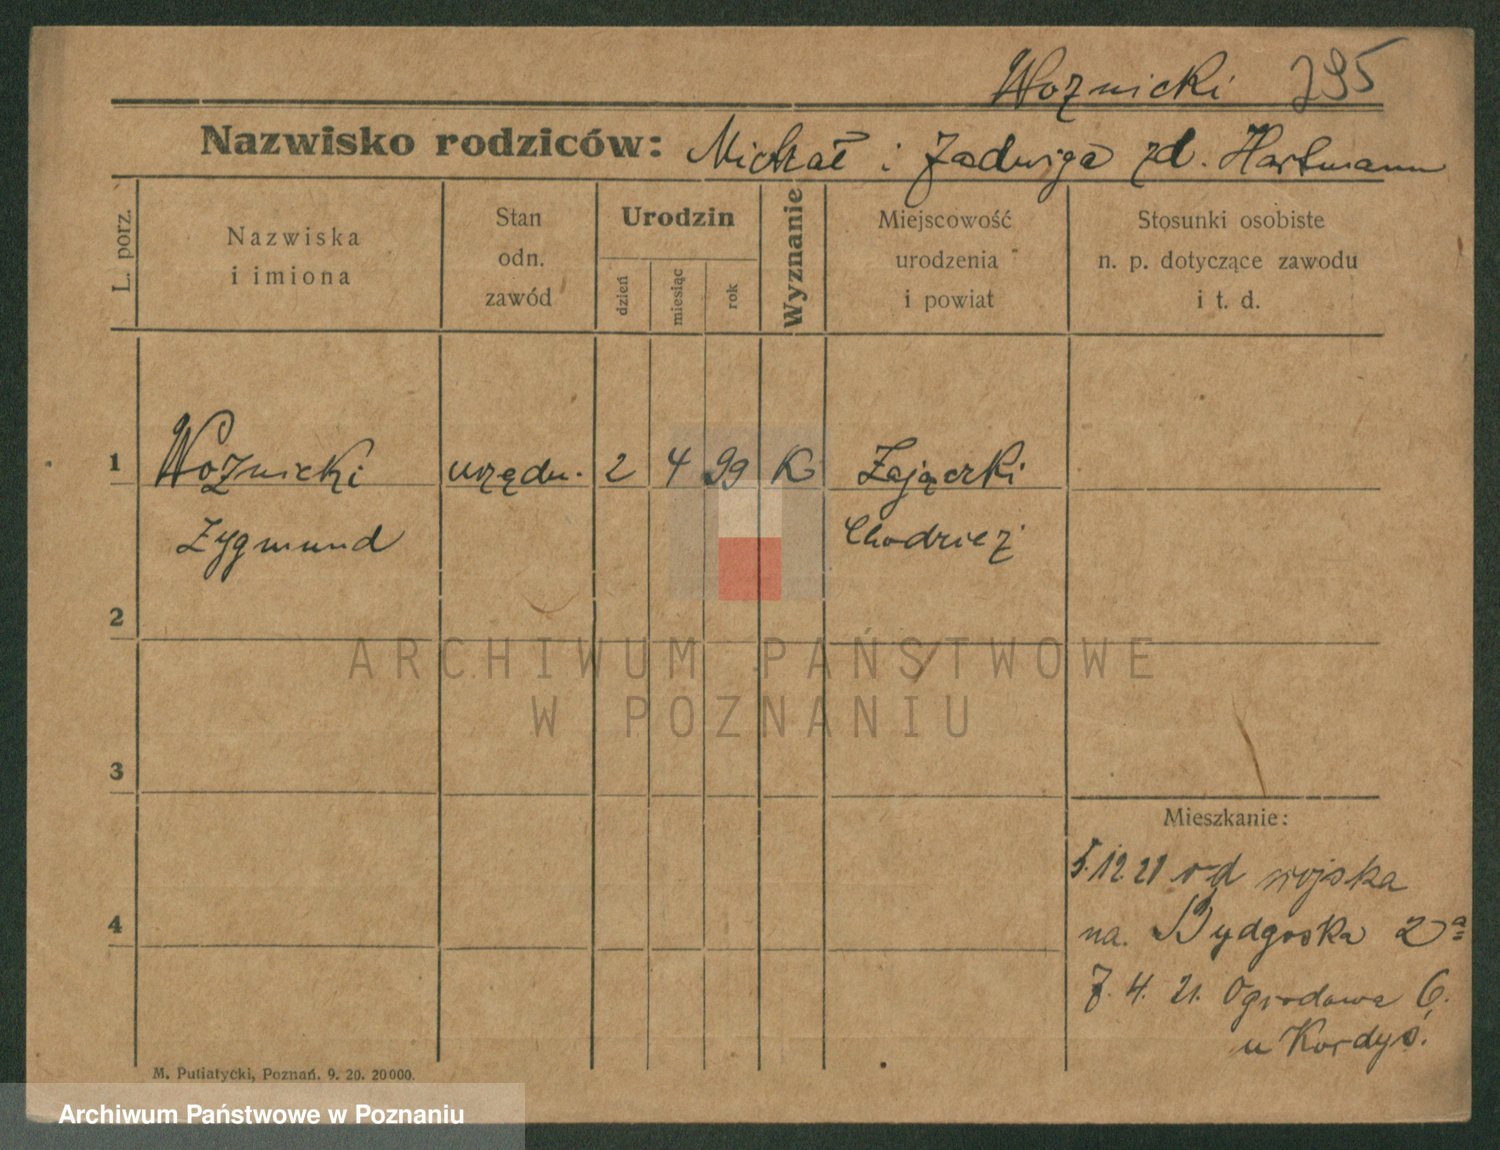 Woznicki 795
Nazwisko rodziców: Michał i Jadwiga zd. Hartmann
L. porz.
Nazwiska
i imiona
Stan
odn.
zawód
Urodzin
dzień
miesiąc
rok
Wyznanie
Miejscowość
urodzenia
i powiat
Stosunki osobiste
n. p. dotyczące zawodu
i t. d.
1 Woźnicki urzędn. 2 4 99 K Zajączki
Zygmund Chodzież
2
ARCHIWUM PAŃSTWOWE
W POZNANIU
3
Mieszkanie:
5.12 21 od wojska
4
na. Bydgoska 2a
7. 4. 21. Ogrodowa 6.
u Kordyś.
M. Putiatycki, Poznań. 9. 20. 20000.
Archiwum Państwowe w Poznaniu